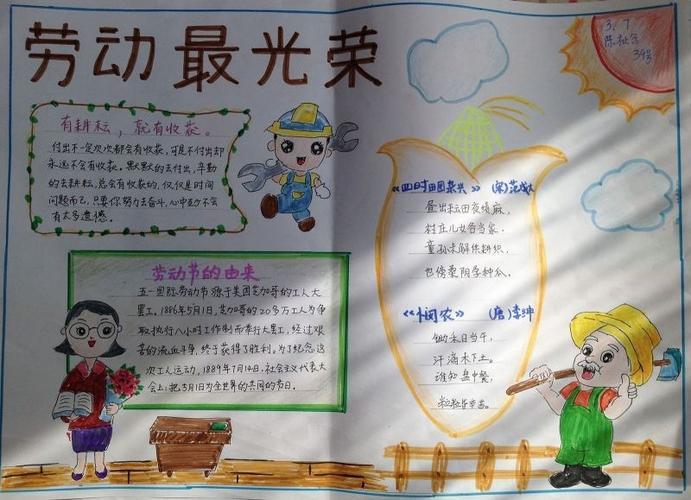 劳动最光荣
3.7
陈祉含
39号
有耕耘，就有收获。
付出不一定次次都会有收获，可是不付出却
永远不会有收获。默默的去付出，辛勤
的去耕耘，总会有收获的，仅仅是时间
问题而已，只要你努力去奋斗，心中也才不会
有太多遗憾。
劳动节的由来
五一国际劳动节源于美国芝加哥的工人大
罢工。1886年5月1日，芝加哥的20多万工人为争
取执行八小时工作制而举行大罢工，经过艰
苦的流血斗争，终于获得了胜利。为了纪念这
次工人运动，1889年7月14日，社会主义代表大
会上，把5月1日为全世界的共同的节日。
《四时田园杂兴》（宋）范成大
昼出耘田夜绩麻，
村庄儿女各当家。
童孙未解供耕织，
也傍桑阴学种瓜。
《悯农》（唐）李绅
锄禾日当午，
汗滴禾下土。
谁知盘中餐，
粒粒皆辛苦。